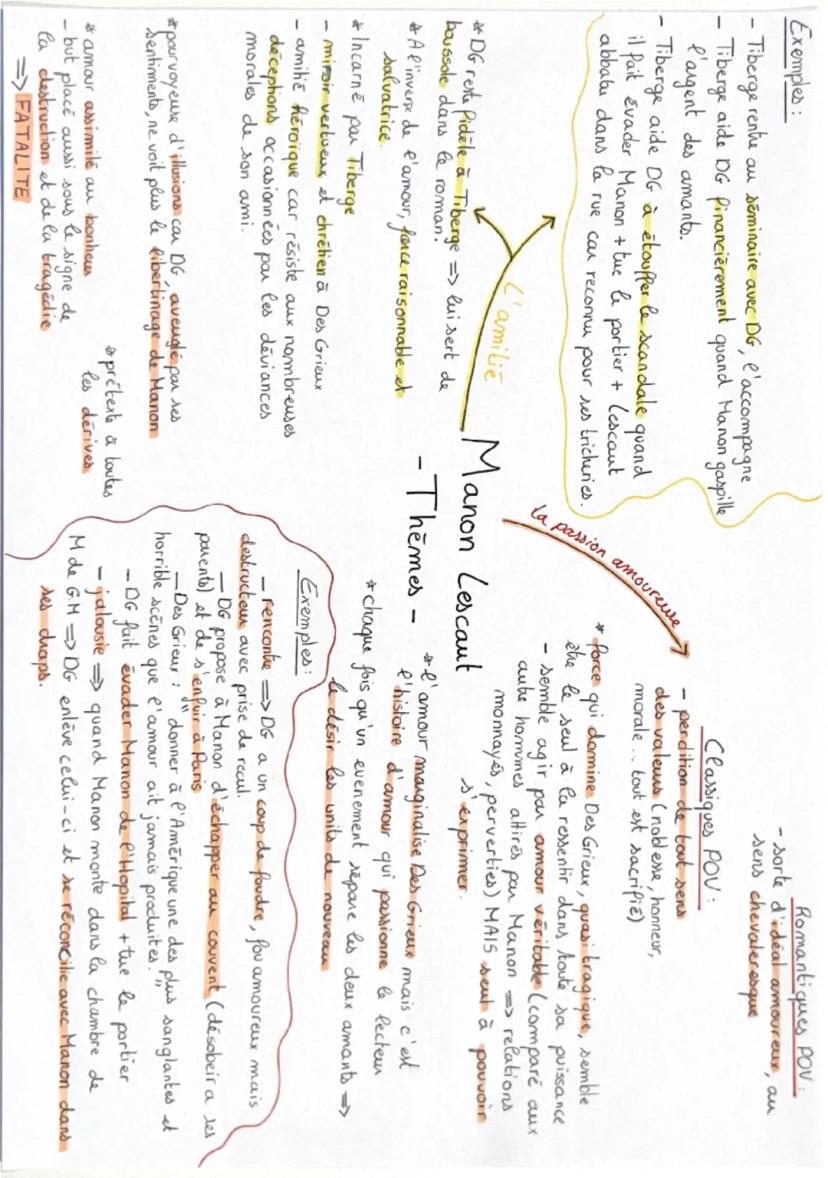 Manon Lescaut
- Thèmes -
L'amitié
Exemples :
- Tiberge rentre au séminaire avec DG, l'accompagne
- Tiberge aide DG financièrement quand Manon gaspille
l'argent des amants.
- Tiberge aide DG à étouffer le scandale quand
il fait évader Manon + tue le portier + Lescaut
abbatu dans la rue car reconnu pour ses tricheries.
* DG reste fidèle à Tiberge => lui sert de
boussole dans le roman.
* A l'inverse de l'amour, force raisonnable et
salvatrice.
* Incarné par Tiberge
- miroir vertueux et chrétien à Des Grieux
- amitié héroïque car résiste aux nombreuses
déceptions occasionnées par les déviances
morales de son ami.
la passion amoureuse
Romantiques POV :
- sorte d'idéal amoureux, au
sens chevaleresque
Classiques POV :
- perdition de tout sens
des valeurs (noblesse, honneur,
morale... tout est sacrifié)
* force qui domine Des Grieux, quasi tragique, semble
être le seul à la ressentir dans toute sa puissance
- semble agir par amour véritable (comparé aux
autre hommes attirés par Manon => relations
monnayés, perverties) MAIS seul à pouvoir
s'exprimer.
* l'amour marginalise Des Grieux mais c'est
l'histoire d'amour qui passionne le lecteur
* chaque fois qu'un evenement sépare les deux amants =>
le désir les units de nouveau
Exemples :
- rencontre => DG a un coup de foudre, fou amoureux mais
destructeur avec prise de recul.
- DG propose à Manon d'échapper au couvent (désobeir a ses
parents) et de s'enfuir à Paris
- Des Grieux : " donner à l'Amérique une des plus sanglantes et
horrible scènes que l'amour ait jamais produites. "
- DG fait évader Manon de l'Hopital + tue le portier
- jalousie => quand Manon monte dans la chambre de
M de G.M => DG enlève celui-ci et se réconcilie avec Manon dans
ses draps.
* pourvoyeuse d'illusions car DG, aveuglé par ses
sentiments, ne voit plus le libertinage de Manon
* prétexte à toutes
les dérives
* amour assimilé au bonheur
- but placé aussi sous le signe de
la destruction et de la tragédie
=> FATALITE